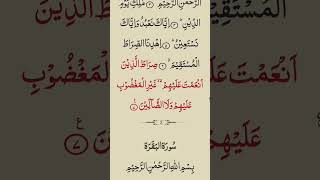 الرَّحْمٰنِ الرَّحِيْمِ ۙ مٰلِكِ يَوْمِ
الدِّيْنِ ؕ اِيَّاكَ نَعْبُدُ وَاِيَّاكَ
نَسْتَعِيْنُ ؕ اِهْدِنَا الصِّرَاطَ
الْمُسْتَقِيْمَ ۙ صِرَاطَ الَّذِيْنَ
اَنْعَمْتَ عَلَيْهِمْ ۙ غَيْرِ الْمَغْضُوْبِ
عَلَيْهِمْ وَلَا الضَّآلِّيْنَ
سُوْرَةُ الْبَقَرَة
بِسْمِ اللهِ الرَّحْمٰنِ الرَّحِيْمِ